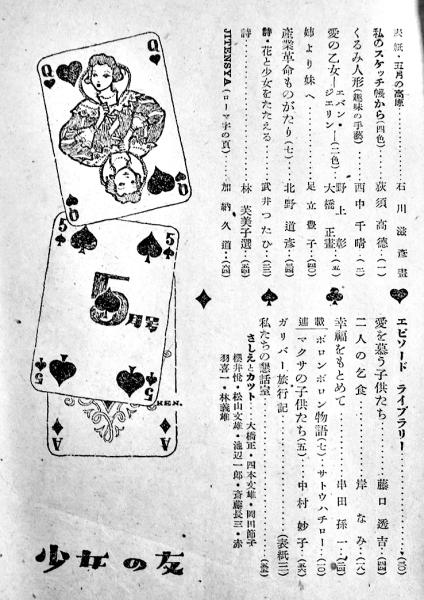 表紙・五月の高原……石川滋彦畫
私のスケッチ帳から(四色)……荻須高德(一)
くるみ人形(趣味の手藝)……西中千晴(二)
愛の乙女―エバンジェリン―(二色)……野上彰 大橋正畫
姉より妹へ……足立豊子(四)
產業革命ものがたり(七)……北野道彦
詩・花と少女をたたえる……武井つたひ
詩……林芙美子選
JITENSYA(ローマ字の頁)……加納久道
エピソード ライブラリー
愛を慕う子供たち……藤口透吉
二人の乞食……岸なみ
幸福をもとめて……串田孫一
連載 ボロンボロン物語(七)・サトウハチロー
マクサの子供たち(五)……中村妙子
ガリバー旅行記……(表紙三)
私たちの懇話室
さしえとカット・大橋正・四本文雄・岡田節子
櫻井悅・松山文雄・池辺一郎・斎藤長三・赤
羽喜一・林義雄
Q
Q
5
5月号
5
KEN.
A
A
少女の友